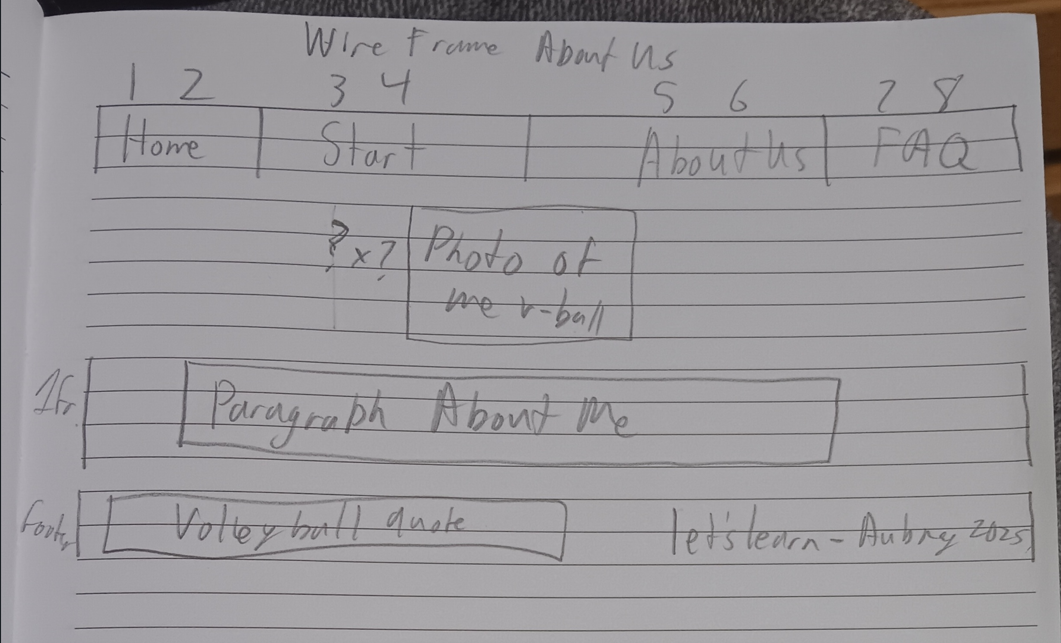 Wire Frame About Us
1 2 3 4 5 6 7 8
Home Start About Us FAQ
? x ? Photo of
me v-ball
1fr Paragraph About Me
footer Volleyball quote let's learn - Aubrey 2025